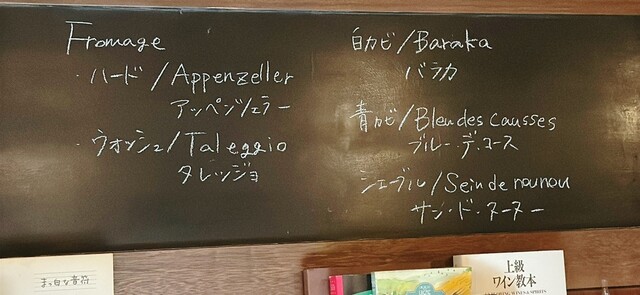 Fromage
・ハード/Appenzeller
アッペンツェラー
・ウオッシュ/Taleggio
タレッジョ
白カビ/Baraka
バラカ
青カビ/Bleu des causses
ブルー・デ・コース
シェーブル/Sein de nounou
サン・ド・ヌーヌー
まっ白な音符
上級
ワイン教本